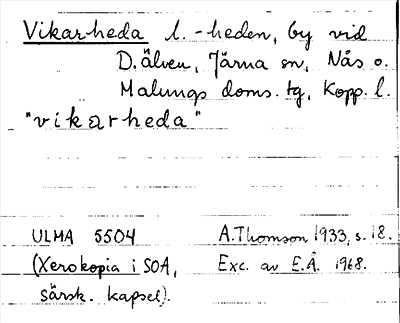 Vikarheda l. -heden, by vid
D. älven, Järna sn, Nås o.
Malungs doms. tg, Kopp. l.
"vikarheda"
ULMA 5504 A. Thomson 1933, s. 18.
(Xerokopia i SOA, Exc. av E.Å. 1968.
särsk. kapsel).